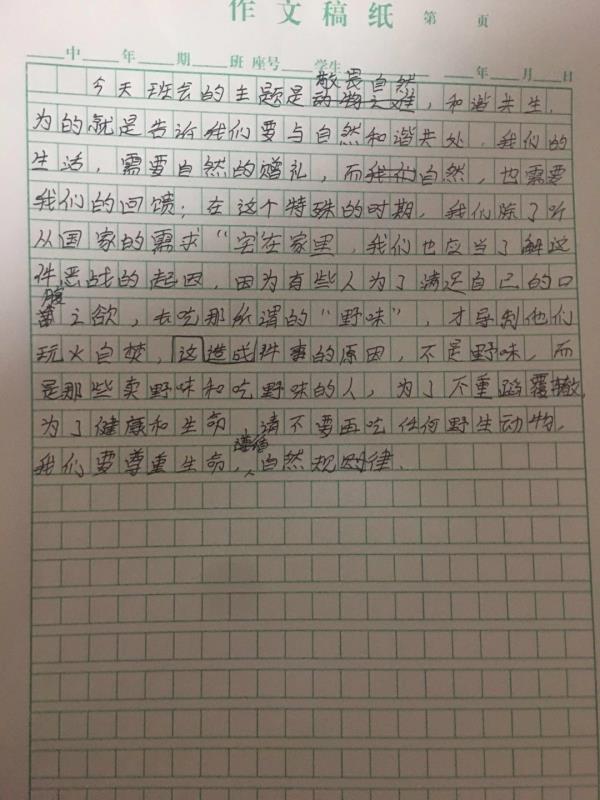 作文稿纸 第 页
中 年 期 班 座号 学生 年 月 日
敬畏自然
今天班会的主题是动物之难，和谐共生.
为的就是告诉我们要与自然和谐共处.我们的
生活，需要自然的赠礼，而我们自然，也需要
我们的回馈；在这个特殊的时期，我们除了听
从国家的需求“宅在家里.我们也应当了解这
件恶战的起因，因为有些人为了满足自己的口
腹
之欲，去吃那所谓的“野味”，才导制他们
玩火自焚，这造成件事的原因，不是野味，而
是那些卖野味和吃野味的人，为了不重蹈覆辙，
为了健康和生命，请不要再吃任何野生动物，
遵循
我们要尊重生命，自然规则律.